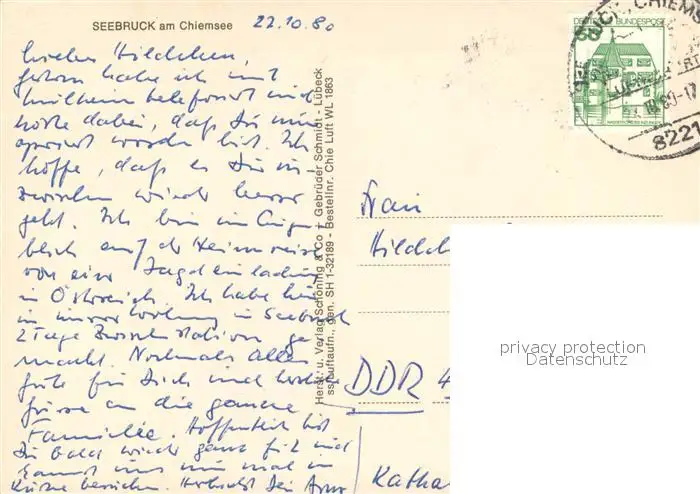 SEEBRUCK am Chiemsee
22.10.80
Liebes Hildchen,
gestern habe ich mit
Mülheim telefoniert und
hörte dabei, daß Du nun
operiert worden bist. Ich
hoffe, daß es Dir in-
zwischen wieder besser
geht. Ich bin im Augen-
blick auf der Heimreise
von einer Jagdeinladung
in Österreich. Ich habe hier
in Seebruck
2 Tage Zwischenstation ge-
macht. Nochmals alles
gute für Dich und herzliche
Grüsse an die ganze
Familie. Hoffentlich bist
Du bald wieder ganz fit und
kannst uns nun mal in
besuchen. Herzlichst Dein
Herst. u. Verlag Schöning & Co + Gebrüder Schmidt - Lübeck
ss-Luftaufn., gen. SH 1-32189 - Bestellnr. Chie Luft WL 1863
DEUTSCHE BUNDESPOST
SEEBRUCK, CHIEMS
LUFTKURORT
.80-17
8221
Frau
Hildch
DDR 4
Katha
privacy protection
Datenschutz